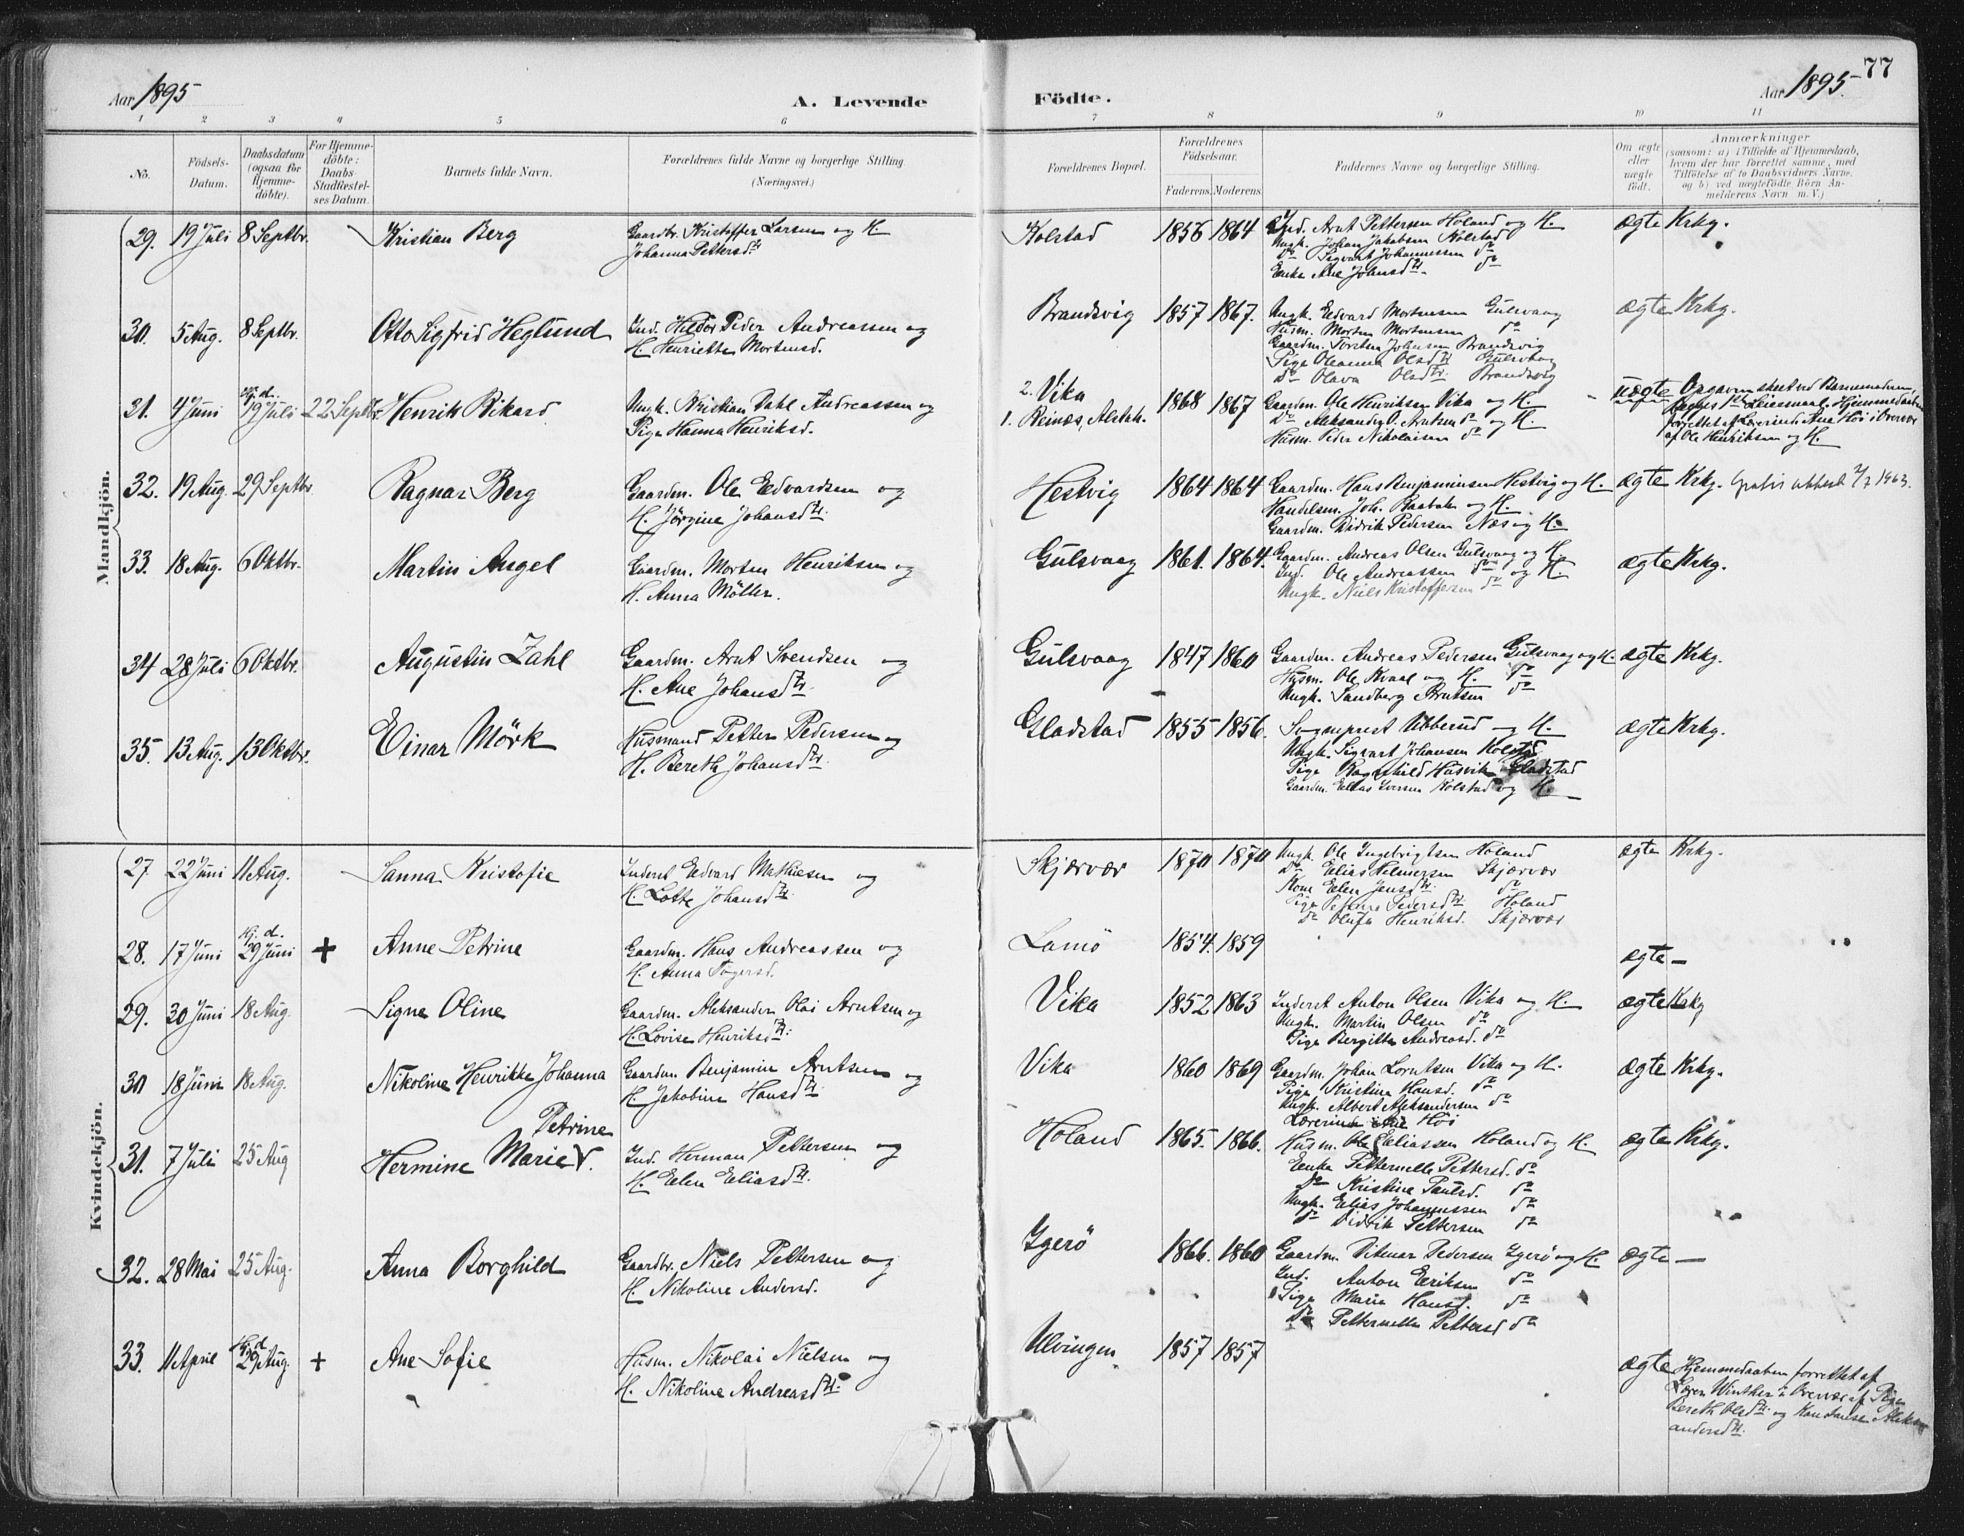 Aar 1895
A. Levende
Födte.
Aar 1895.
77
1 2 3 4 5 6 7 8 9 10 11
No.
Födsels-
Datum.
Daabsdatum
(ogsaa for
Hjemme-
döbte).
For Hjemme-
döbte:
Daabs-
Stadfæstel-
ses Datum.
Barnets fulde Navn.
Forældrenes fulde Navne og borgerlige Stilling
(Næringsvei.)
Forældrenes Bopæl.
Forældrenes
Födselsaar.
Faderens. Moderens.
Faddernes Navne og borgerlige Stilling.
Om ægte
eller
uægte
födt.
Anmærkninger
(saasom: a) i Tilfælde af Hjemmedaab,
hvem der har forrettet samme, med
Tilföielse af to Daabsvidners Navne,
og b) ved uægtefödte Börn An-
melderens Navn m. V.)
Mandkjön.
29. 19 Juli 8 Septbr. Kristian Berg
Gaardbr. Kristoffer Larsen og H.
Johanna Pettersdtr.
Kolstad 1856 1864
Ind. Arnt Pettersen Holand og H.
Ungk. Johan Jakobsen Kolstad
do Sigvart Johannessen do
Enke Ane Johnsdtr. do
ægte Krkg.
30. 5 Aug. 8 Septbr. Otto Sigfrid Heglund
Ind. Hildor Peder Andreassen og
H. Henriette Mortensd.
Brandsvig 1857 1867.
Ungk. Edvard Mortensen Gulsvaag
Husm. Morten Mortensen do
Gaardm. Torsten Johansen Brandsvig
Pige Oleanna Olsdtr Gulsvaag
do Olava Olsdtr. Brandsvig
ægte Krkg.
31. 4 Juni Hj. d. 19 Juli 22 Septbr. Henrik Rikard
Ungk. Kristian Dahl Andreassen og
Pige Hanna Henriksd.
2. Vika
1. Reinæs, Alstah. 1868 1867
Gaardm. Ole Henriksen Vika og H.
do Aleksander O. Arntsen do og H.
Husm. Peder Nikolaisen do
uægte Opgaven skeet ved Barnemoderen,
Hjemmedaaben
forrettet af Lærerinde Ane Höi i Overvær
af Ole Henriksen og H.
32. 19 Aug. 29 Septbr. Ragnar Berg
Gaardm. Ole Edvardsen og
H. Jörgine Johansdtr.
Hestvig 1864 1864
Gaardm. Hans Benjaminsen Hestvig og H.
Handelsm. Joh. Baabak og H.
Gaardm. Didrik Pedersen Næs og H.
ægte Krkg. Gratis utskrevet 2/7 1963.
33. 18 Aug. 6 Oktbr. Martin Angel
Gaardm. Morten Henriksen og
H. Anna Möller.
Gulsvaag 1861. 1864.
Gaardm. Andreas Olsen Gulsvaag og H.
Ind. Ole Andreassen do og H.
Ungk. Niels Kristoffersen do
ægte Krkg.
34 28 Juli 6 Oktbr. Augustin Zahl
Gaardm. Arnt Svendsen og
H. Ane Johansdtr.
Gulsvaag 1847 1860
Gaardm. Andreas Pedersen Gulsvaag og H.
Husm. Ole Kvaal og H. do
Ungk. Sandberg Arntsen do
ægte Krkg.
35. 13 Aug. 13 Oktbr. Einar Mörk
Husmand Petter Pedersen og
H. Bereth Johansdtr.
Gladstad 1855 1856.
Sogneprest Ubberud og H.
Ungk. Sigvart Johansen Kolstad
Pige Ragnhild Husvik Gladstad
Gaardm. Elias Iversen Kolstad og H.
ægte Krkg.
Kvindekjön.
27 22 Juni 11 Aug. Sanna Kristofie
Inderst Edvard Mathiesen og
H. Lotte Johansdtr.
Skjærvær 1870 1870
Ungk. Ole Ingebrigtsen Holand
do Elias Helmersen Skjærvær
Kone Elen Jensdtr. do
Pige Petrine Pedersdtr. Holand
do Olufa Henriksd. Skjærvær
ægte Krkg.
28. 17 Juni Hj. d. 29 Juni + Anne Petrine
Gaardm. Hans Andreassen og
H. Anna Togersd.
Lamö 1854. 1859
ægte —
29. 30 Juni 18 Aug. Signe Oline
Gaardm. Aleksander Olai Arntsen og
H. Lovise Henriksdtr.
Vika 1852 1863
Inderst Anton Olsen Vika og H.
Ungk. Martin Olsen do
Pige Bergitte Andreasd. do
ægte Krkg
30 18 Juni 18 Aug. Nikoline Henrikke Johanna
Petrine
Gaardm Benjamin Arntsen og
H. Jakobine Hansdtr.
Vika 1860 1869
Gaardm. Johan Lorntsen Vika og H.
Pige Kristina Hansd. do
Ungk. Albert Aleksandersen do
Lærerinde Ane Höi
ægte Krkg.
31. 7 Juli 25 Aug Hermine Marie
Ind. Herman Pettersen og
H. Elen Eliasdtr.
Holand 1865. 1866.
Husm. Ole Eliassen Holand og H.
Enke Petternelle Pettersd. do
do Kristine Paulsd. do
Ungk. Elias Johannessen do
do Didrik Pettersen do
ægte Krkg.
32. 28 Mai 25 Aug. Anna Borghild
Gaardbr. Niels Pettersen og
H. Nikoline Andersd.
Ygerö 1866. 1860
Gaardm. Ditmar Pedersen Ygerö og H
Ind. Anton Eriksen do
Pige Maria Hansd. do
do Petternelle Pettersd do
ægte —
33. 11 April Hj. d. 29 Aug. + Ane Sofie
Husm. Nikolai Nielsen og
H. Nikoline Andreasdtr.
Ulvingen 1857 1857
ægte Hjemmedaaben forrettet af
Sören Winther i Overvær af Pige
Bereth Olsdtr. og Konstanse Aleks-
andersdtr.